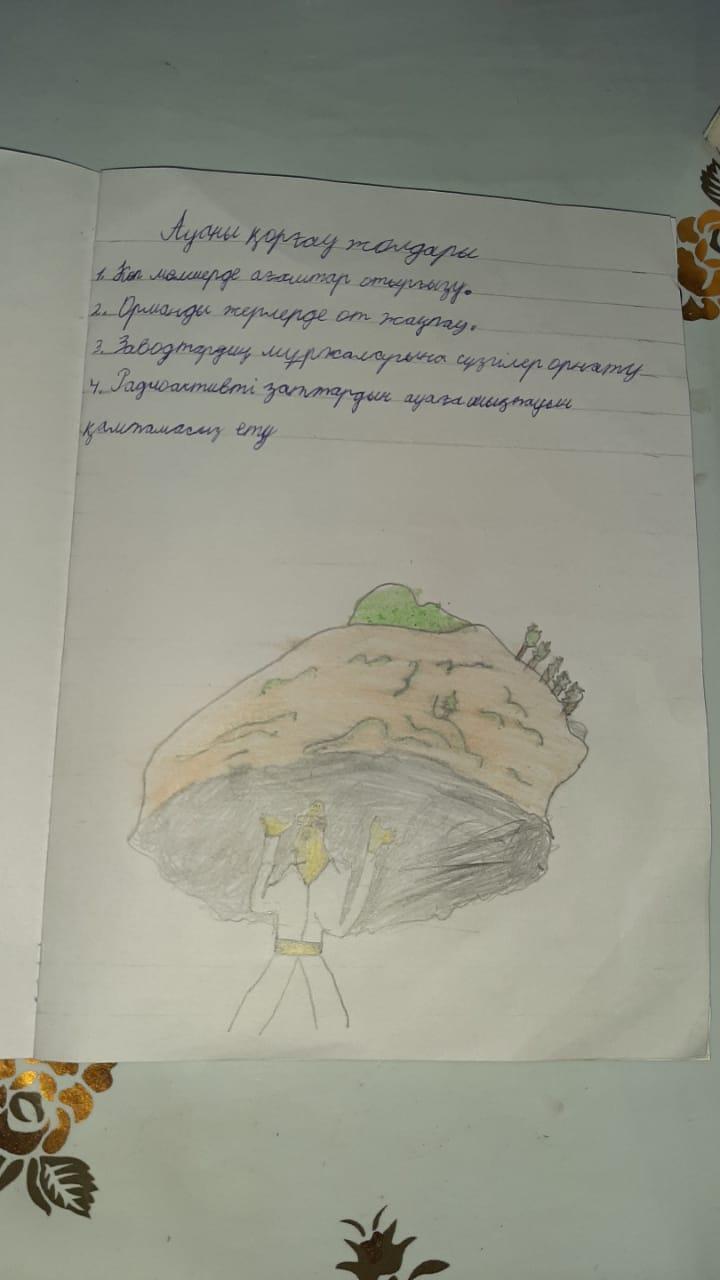 Ауаны қорғау жолдары
1. Көп мөлшерде ағаштар отырғызу.
2. Орманды жерлерде от жақпау.
3. Заводтардың мұржаларына сүзгілер орнату
4. Радиоактивті заттардың ауаға шықпауын
қамтамасыз ету